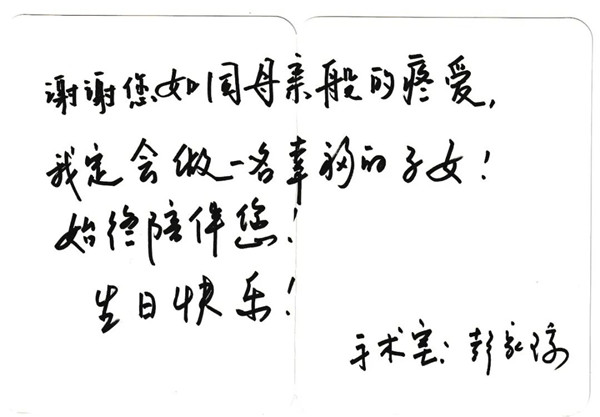 谢谢您如同母亲般的疼爱,
我定会做一名幸福的子女!
始终陪伴您!
生日快乐!
手术室: 彭